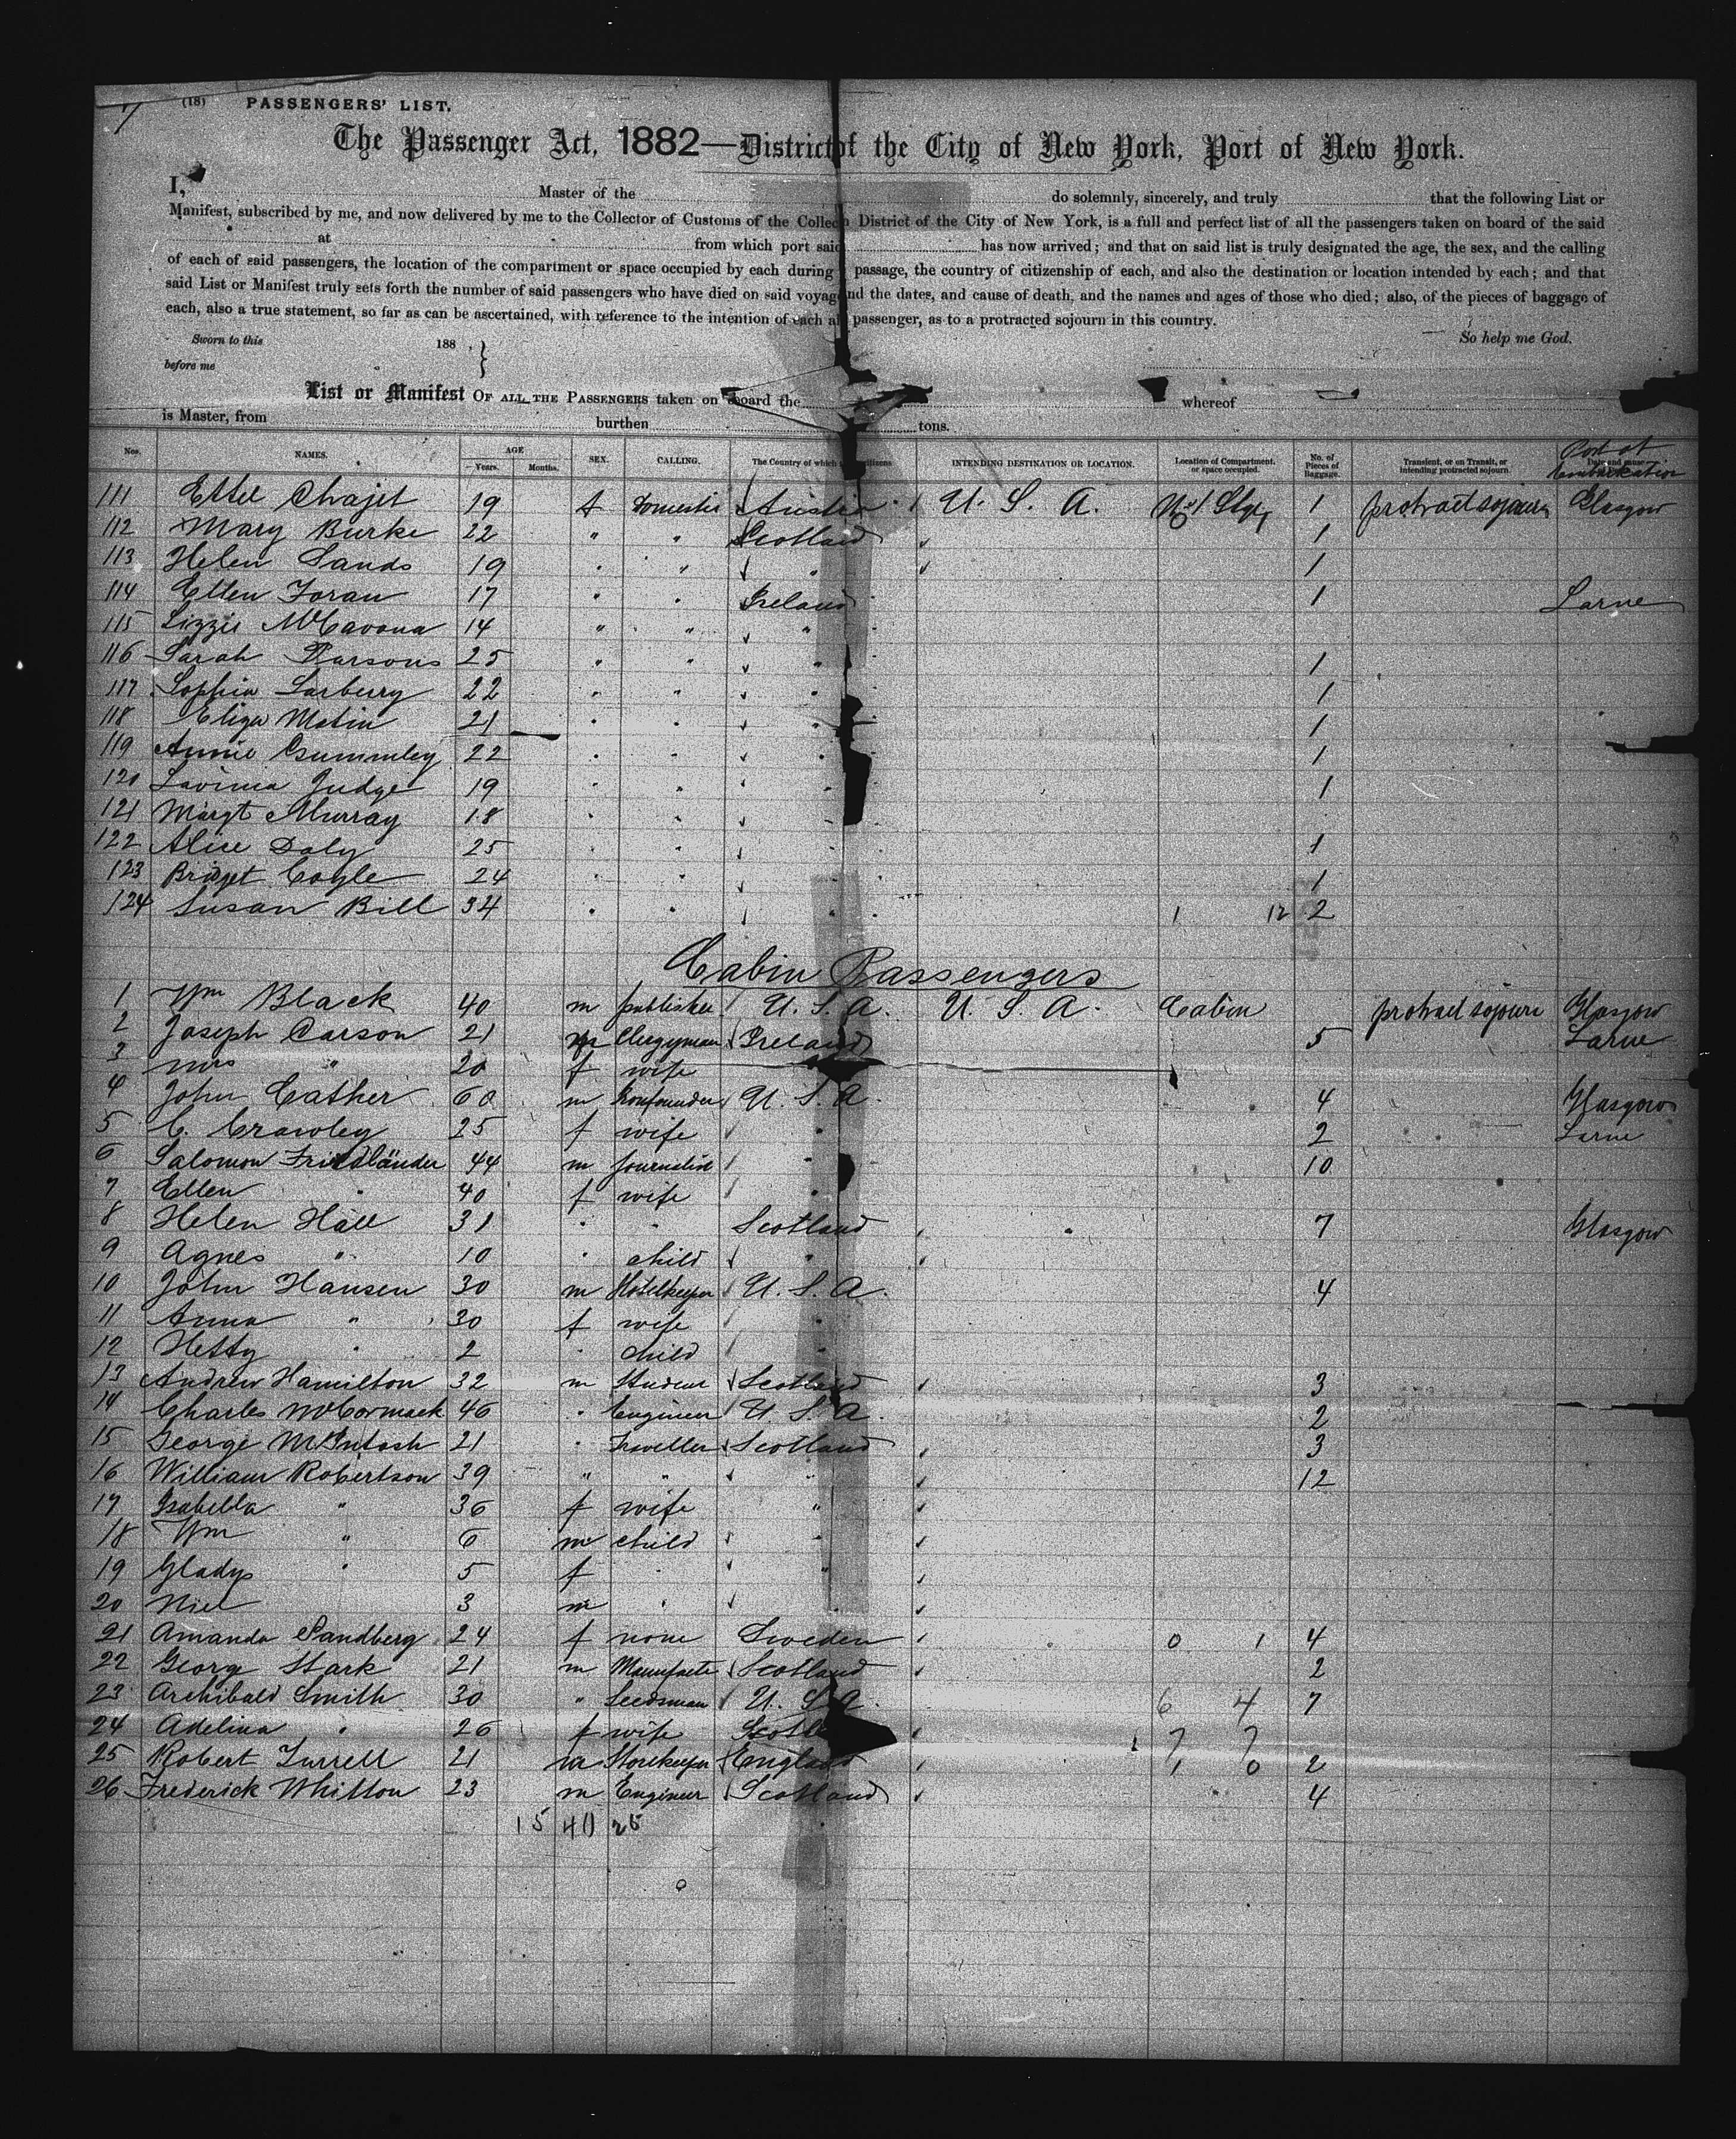 (18) PASSENGERS' LIST.
The Passenger Act, 1882—District of the City of New York, Port of New York.
I, Master of the do solemnly, sincerely, and truly that the following List or
Manifest, subscribed by me, and now delivered by me to the Collector of Customs of the Collec District of the City of New York, is a full and perfect list of all the passengers taken on board of the said
at from which port said has now arrived; and that on said list is truly designated the age, the sex, and the calling
of each of said passengers, the location of the compartment or space occupied by each during passage, the country of citizenship of each, and also the destination or location intended by each; and that
said List or Manifest truly sets forth the number of said passengers who have died on said voyag nd the dates, and cause of death, and the names and ages of those who died; also, of the pieces of baggage of
each, also a true statement, so far as can be ascertained, with reference to the intention of each al passenger, as to a protracted sojourn in this country.
Sworn to this 188 . So help me God.
before me
List or Manifest OF ALL THE PASSENGERS taken on board the whereof
is Master, from burthen tons.
Nos. NAMES. AGE Years. Months. SEX. CALLING. The Country of which citizens INTENDING DESTINATION OR LOCATION. Location of Compartment, or space occupied. No. of Pieces of Baggage. Transient, or on Transit, or intending protracted sojourn. Port of Embarkation
111 Ettel Chajet 19 f Domestic Austria U. S. A. No 1 Stge 1 protract sojourn Glasgow
112 Mary Burke 22 " " Scotland 1
113 Helen Sands 19 " " " 1
114 Ellen Foran 17 " " Ireland 1 Larne
115 Lizzie McCavona 14 " " "
116 Sarah Parsons 25 " " " 1
117 Sophia Larberry 22 " " " 1
118 Eliza Matin 21 " " " 1
119 Annie Crummley 22 " " " 1
120 Lavinia Judge 19 " " " 1
121 Margt Murray 18 " " "
122 Alice Daly 25 " " " 1
123 Bridget Coyle 24 " " " 1
124 Susan Bill 34 " " " 1 12 2
Cabin Passengers
1 Wm Black 40 m publisher U. S. A. U. S. A. Cabin protract sojourn Glasgow
2 Joseph Carson 21 m Clergyman Ireland 5 Larne
3 Mrs " 20 f wife
4 John Cather 60 m Ironfounder U. S. A. 4 Glasgow
5 C. Crawley 25 f wife " 2 Larne
6 Salomon Friedländer 44 m Journalist " 10
7 Ellen " 40 f wife "
8 Helen Hall 31 " " Scotland 7 Glasgow
9 Agnes " 10 " child "
10 John Hansen 30 m Hotelkeeper U. S. A. 4
11 Anna " 30 f wife "
12 Hetty " 2 " child "
13 Andrew Hamilton 32 m Student Scotland 3
14 Charles McCormack 46 " Engineer U. S. A. 2
15 George McIntosh 21 " Traveller Scotland 3
16 William Robertson 39 " " " 12
17 Isabella " 36 f wife "
18 Wm " 6 m child "
19 Gladys " 5 f " "
20 Niel 3 m " "
21 Amanda Sandberg 24 f none Sweden 0 1 4
22 Georg Stark 21 m Manufactr Scotland 2
23 Archibald Smith 30 " Seedsman U. S. A. 6 4 7
24 Adelina " 26 f wife Scotl 7 7
25 Robert Turrell 21 m Storekeeper England 1 0 2
26 Frederick Whitton 23 m Engineer Scotland 4
15 40 25